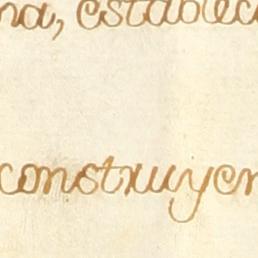 na, establec
construyen